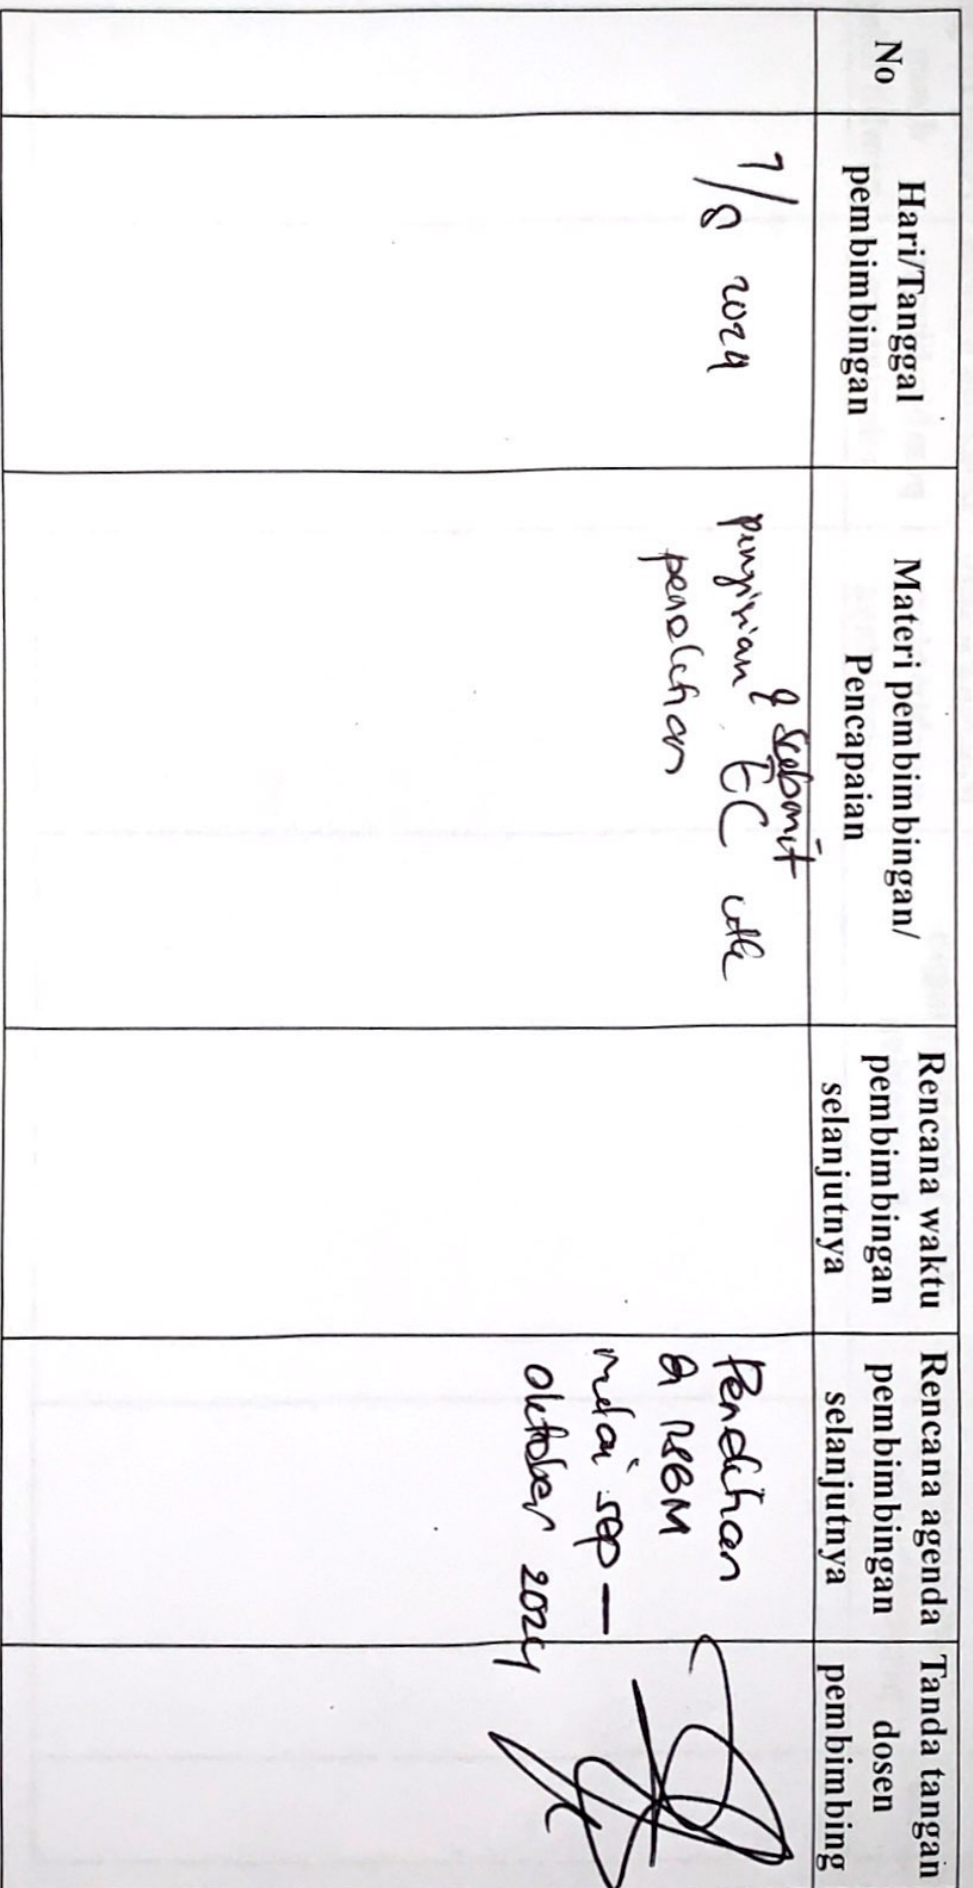 No
Hari/Tanggal
pembimbingan
Materi pembimbingan/
Pencapaian
Rencana waktu
pembimbingan
selanjutnya
Rencana agenda
pembimbingan
selanjutnya
Tanda tangan
dosen
pembimbing
7/8 2024
& submit
pengisian EC utk
penelitian
Penelitian
di RSBM
mulai sep —
oktober 2024